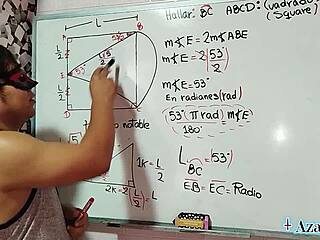 Hallar: BC ABCD: (Cuadrado
(Square)
L
A
B
53°/2
L/2
E
53°
L/2
m∡E = 2m∡ABE
m∡E = 2(53°/2)
m∡E = 53°
En radianes (rad)
(53°) (π rad) m∡E
180°
notable
1K = L/2
2K = 2(L/2) = L
L BC = (53°)
EB = EC = Radio
+ Aza